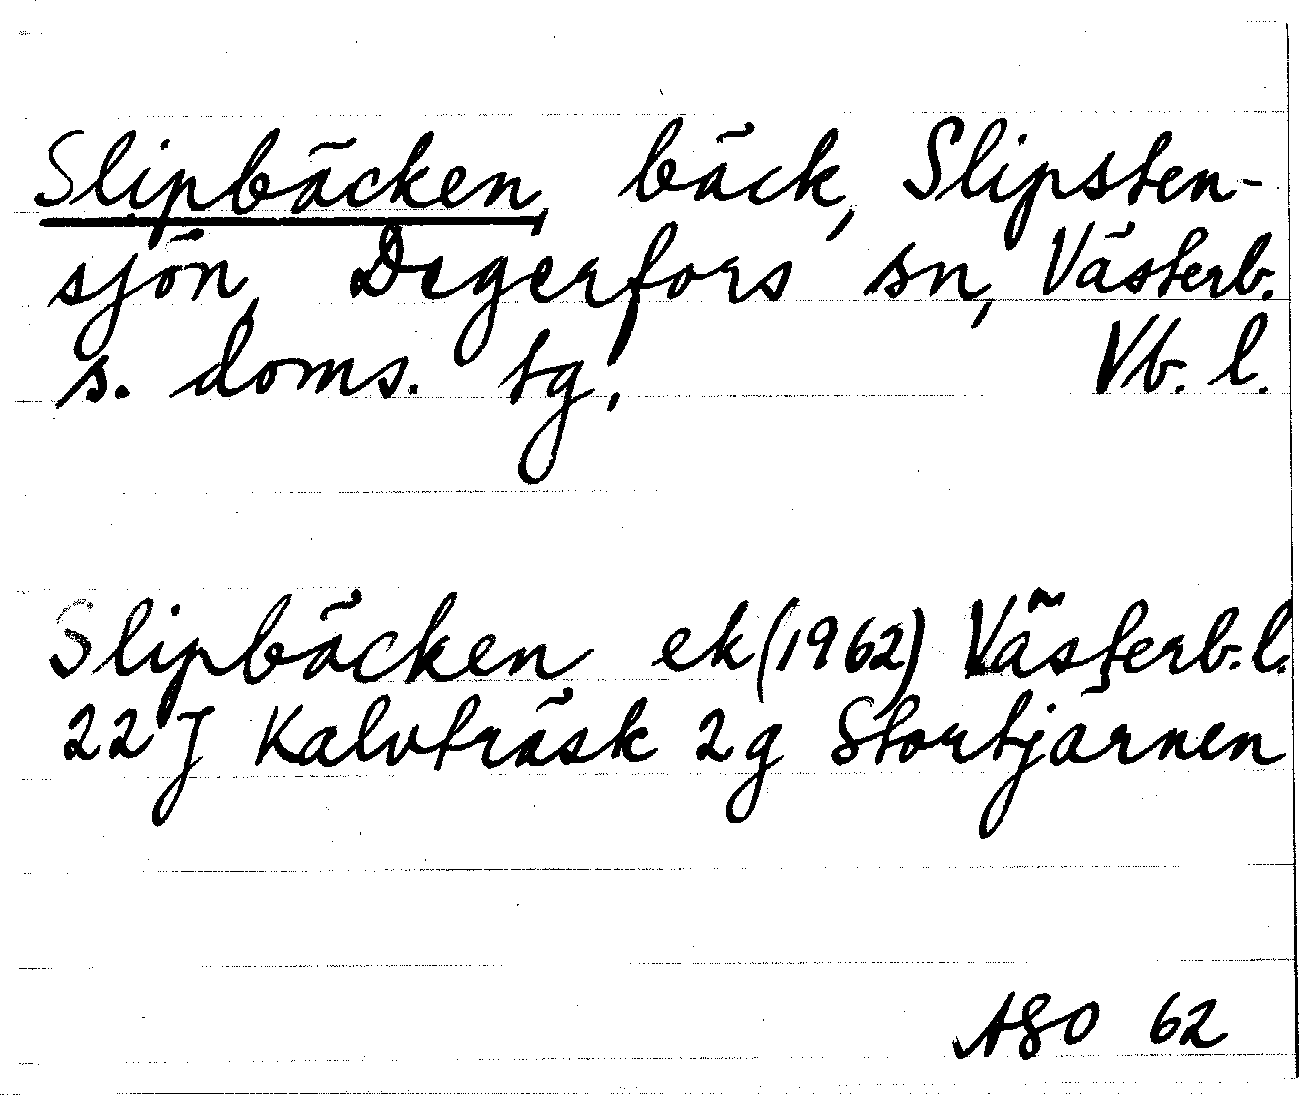 Slipbäcken, bäck, Slipsten-
sjön, Degerfors sn, Västerb.
s. doms. tg, Vb. l.
Slipbäcken ek (1962) Västerb. l.
22 J Kalvträsk 2g Stortjärnen
ASO 62